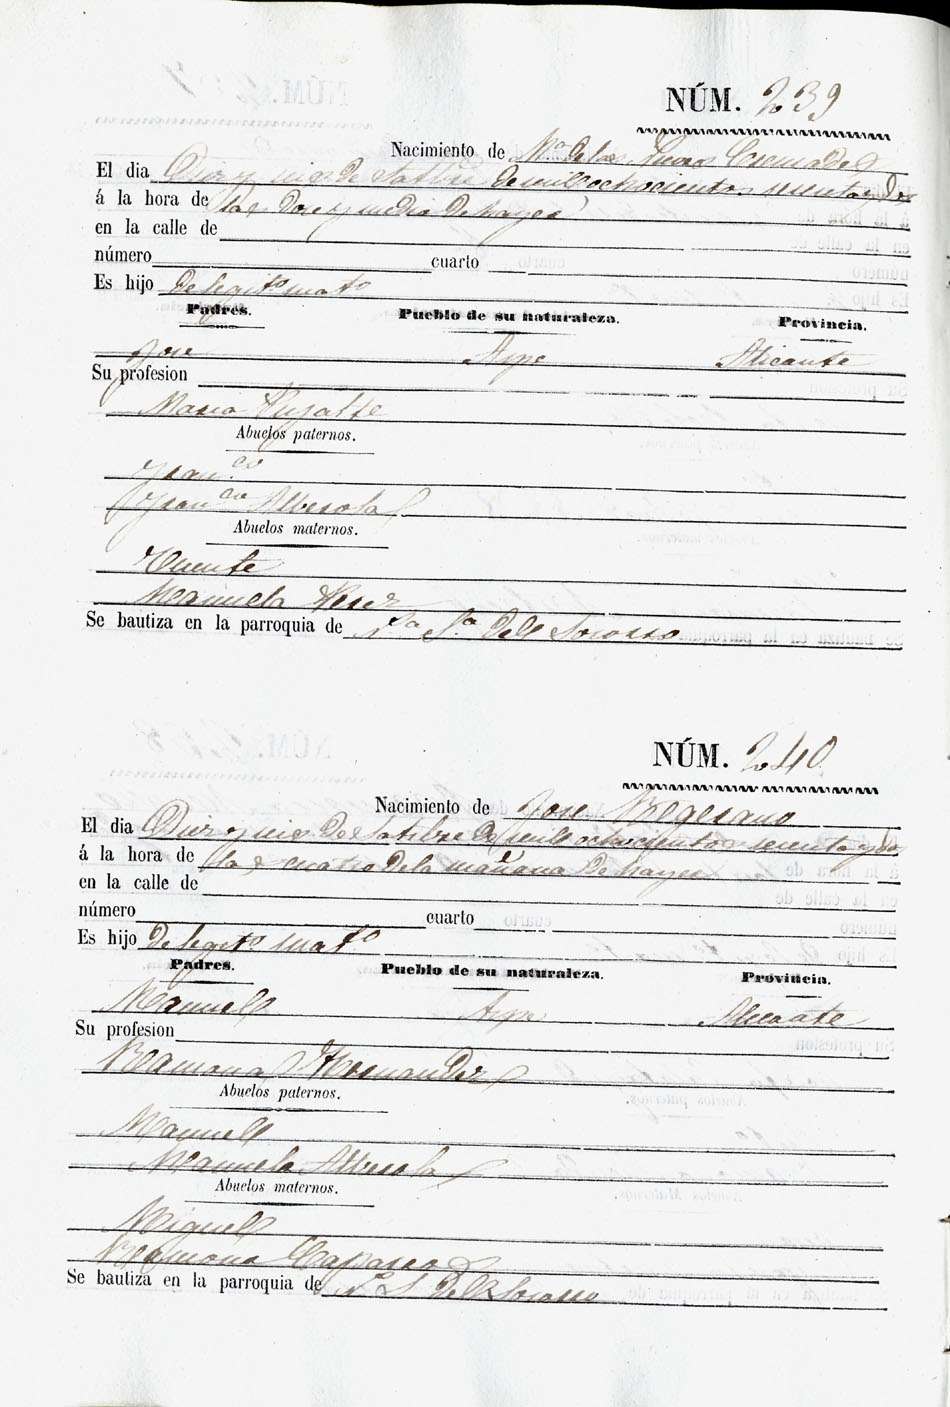 NÚM. 239
Nacimiento de M.ª de las Cremades
El dia Diez y seis de Satbre de mill ochocientos sesenta y dos
á la hora de las dose y media de hayer
en la calle de
número cuarto
Es hijo de legit.º mat.º
Padres. Pueblo de su naturaleza. Provincia.
Jose Aspe Alicante
Su profesion
Maria
Abuelos paternos.
Fran.co
Fran.ca Alberola
Abuelos maternos.
Vicente
Manuela Perez
Se bautiza en la parroquia de N.ª S.ª dell Socorro
NÚM. 240
Nacimiento de Jose
El dia Diez y seis de Satibre de mill ochocientos sesenta y dos
á la hora de las cuatro de la mañana de hayer
en la calle de
número cuarto
Es hijo de legit.º mat.º
Padres. Pueblo de su naturaleza. Provincia.
Manuell Aspe Alicante
Su profesion
Ramona Hernandez
Abuelos paternos.
Manuell
Manuela Alberola
Abuelos maternos.
Miguell
Ramona
Se bautiza en la parroquia de N.ª S. dell Socorro